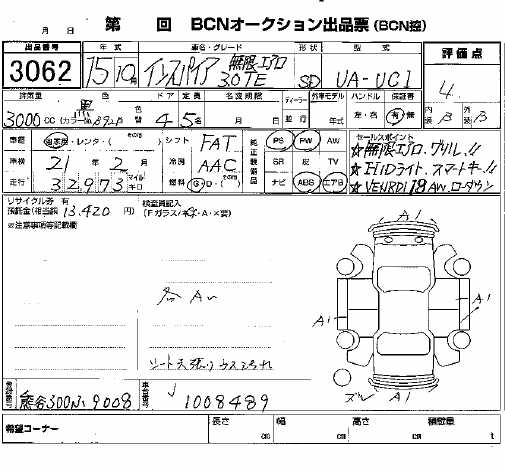 月 日 第 回 BCNオークション出品票(BCN控)
出品番号 年式 車名・グレード 形状 型式 評価点
3062 15 10 インスパイア 無限エアロ 3.0TE SD UA-UC1 4
排気量 色 色替 ドア 定員 名変期限 ディーラー 外車モデル ハンドル 保証書 内装 外装
3000cc 黒 (カラーNo. B92P) 4 5 月 日 並行 年式 左・右 有・無 B B
車歴 自家用・レンタ・( ) シフト FAT 純正装備品 PS PW AW セールスポイント
車検 21年 2月 冷房 AAC SR 皮 TV ☆無限エアロ、グリル!!
走行 32,973 マイル キロ 燃料 G・D・( ) ナビ ABS エアB ☆HIDライト、スマートキー!!
☆VENRDI 19AW、ローダウン
リサイクル券 有
預託金(相当額 13,420 円)
検査員記入
(Fガラス/キズ・A・X要)
※注意事項等記載欄
各 A
シート 天張り ウスヨゴレ
A1
A1
A1
ズレ A1
登録番号 熊谷300 9008 車台番号 1008489
希望コーナー 長さ cm 幅 cm 高さ cm 積載量 t